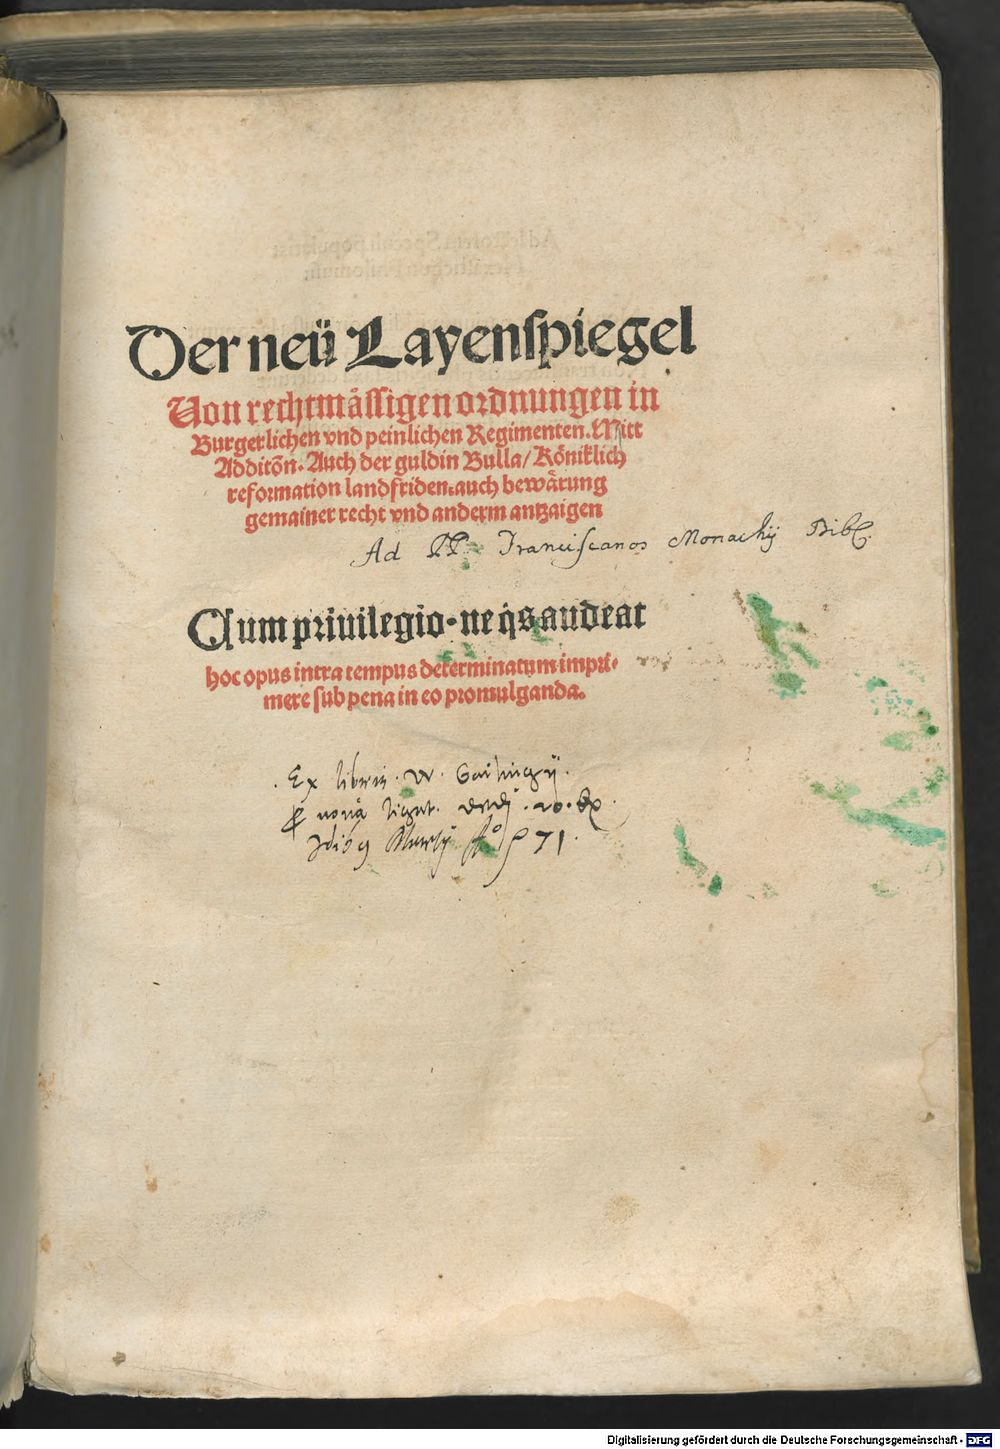 Der neü Layenspiegel
Von rechtmässigen ordnungen in
Burgerlichen vnd peinlichen Regimenten. Mitt
Additõn. Auch der guldin Bulla/ Köniklich
reformation landfriden. auch bewärung
gemainer recht vnd anderm antzaigen
Ad PP. Franciscanos Monachij Bibl.
Cum priuilegio. ne q̃s audeat
hoc opus intra tempus determinatum impri-
mere sub pena in eo promulganda.
Ex libris
71.
Digitalisierung gefördert durch die Deutsche Forschungsgemeinschaft - DFG